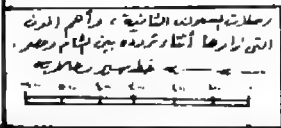 رحلات المسعودي الثانية ، وأهم المدن
التي زارها أثناء تردده بين الشام ومصر .
خط سير رحلاته